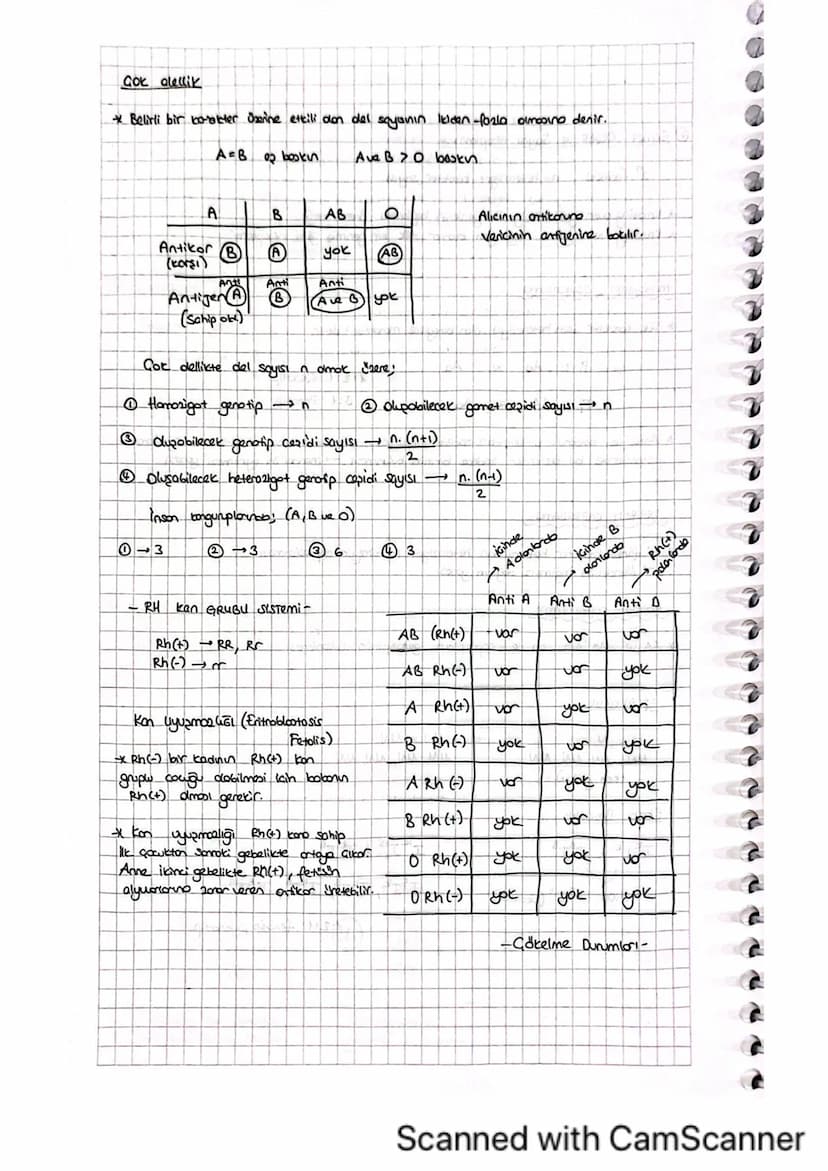 Çok alellik
* Belirli bir karakter üzerine etkili olan alel sayısının ikiden fazla olmasına denir.
A=B eş baskın A ve B > O baskın
A B AB O
Antikor (B) (A) yok (AB)
(karşı)
Anti Anti Anti
Antijen (A) (B) (A ve B) yok
(Sahip ol.)
Alıcının antikoruna
Vericinin antijenine bakılır.
Çok alellikte alel sayısı n olmak üzere;
① Homozigot genotip → n ② oluşabilecek gamet çeşidi sayısı → n
③ oluşabilecek genotip çeşidi sayısı → n.(n+1)/2
④ Oluşabilecek heterozigot genotip çeşidi sayısı → n.(n-1)/2
İnsan kangruplarında; (A, B ve O)
① → 3 ② → 3 ③ 6 ④ 3
- RH KAN GRUBU SİSTEMİ -
Rh(+) → RR, Rr
Rh(-) → rr
Kan Uyuşmazlığı (Eritroblastosis
Fetalis)
* Rh(-) bir kadının Rh(+) kan
gruplu çocuğu olabilmesi için babanın
Rh(+) olması gerekir.
* Kan uyuşmazlığı Rh(+) kana sahip
ilk çocuktan sonraki gebelikte ortaya çıkar.
Anne ikinci gebelikte Rh(+), fetüsün
alyuvarlarına zarar veren antikor üretebilir.
→ içinde A olanlarda → içinde B olanlarda → Rh(+) olanlarda
Anti A Anti B Anti D
AB (Rh(+) var var var
AB Rh(-) var var yok
A Rh(+) var yok var
B Rh(-) yok var yok
A Rh(-) var yok yok
B Rh(+) yok var var
O Rh(+) yok yok var
O Rh(-) yok yok yok
-Çökelme Durumları-
Scanned with CamScanner